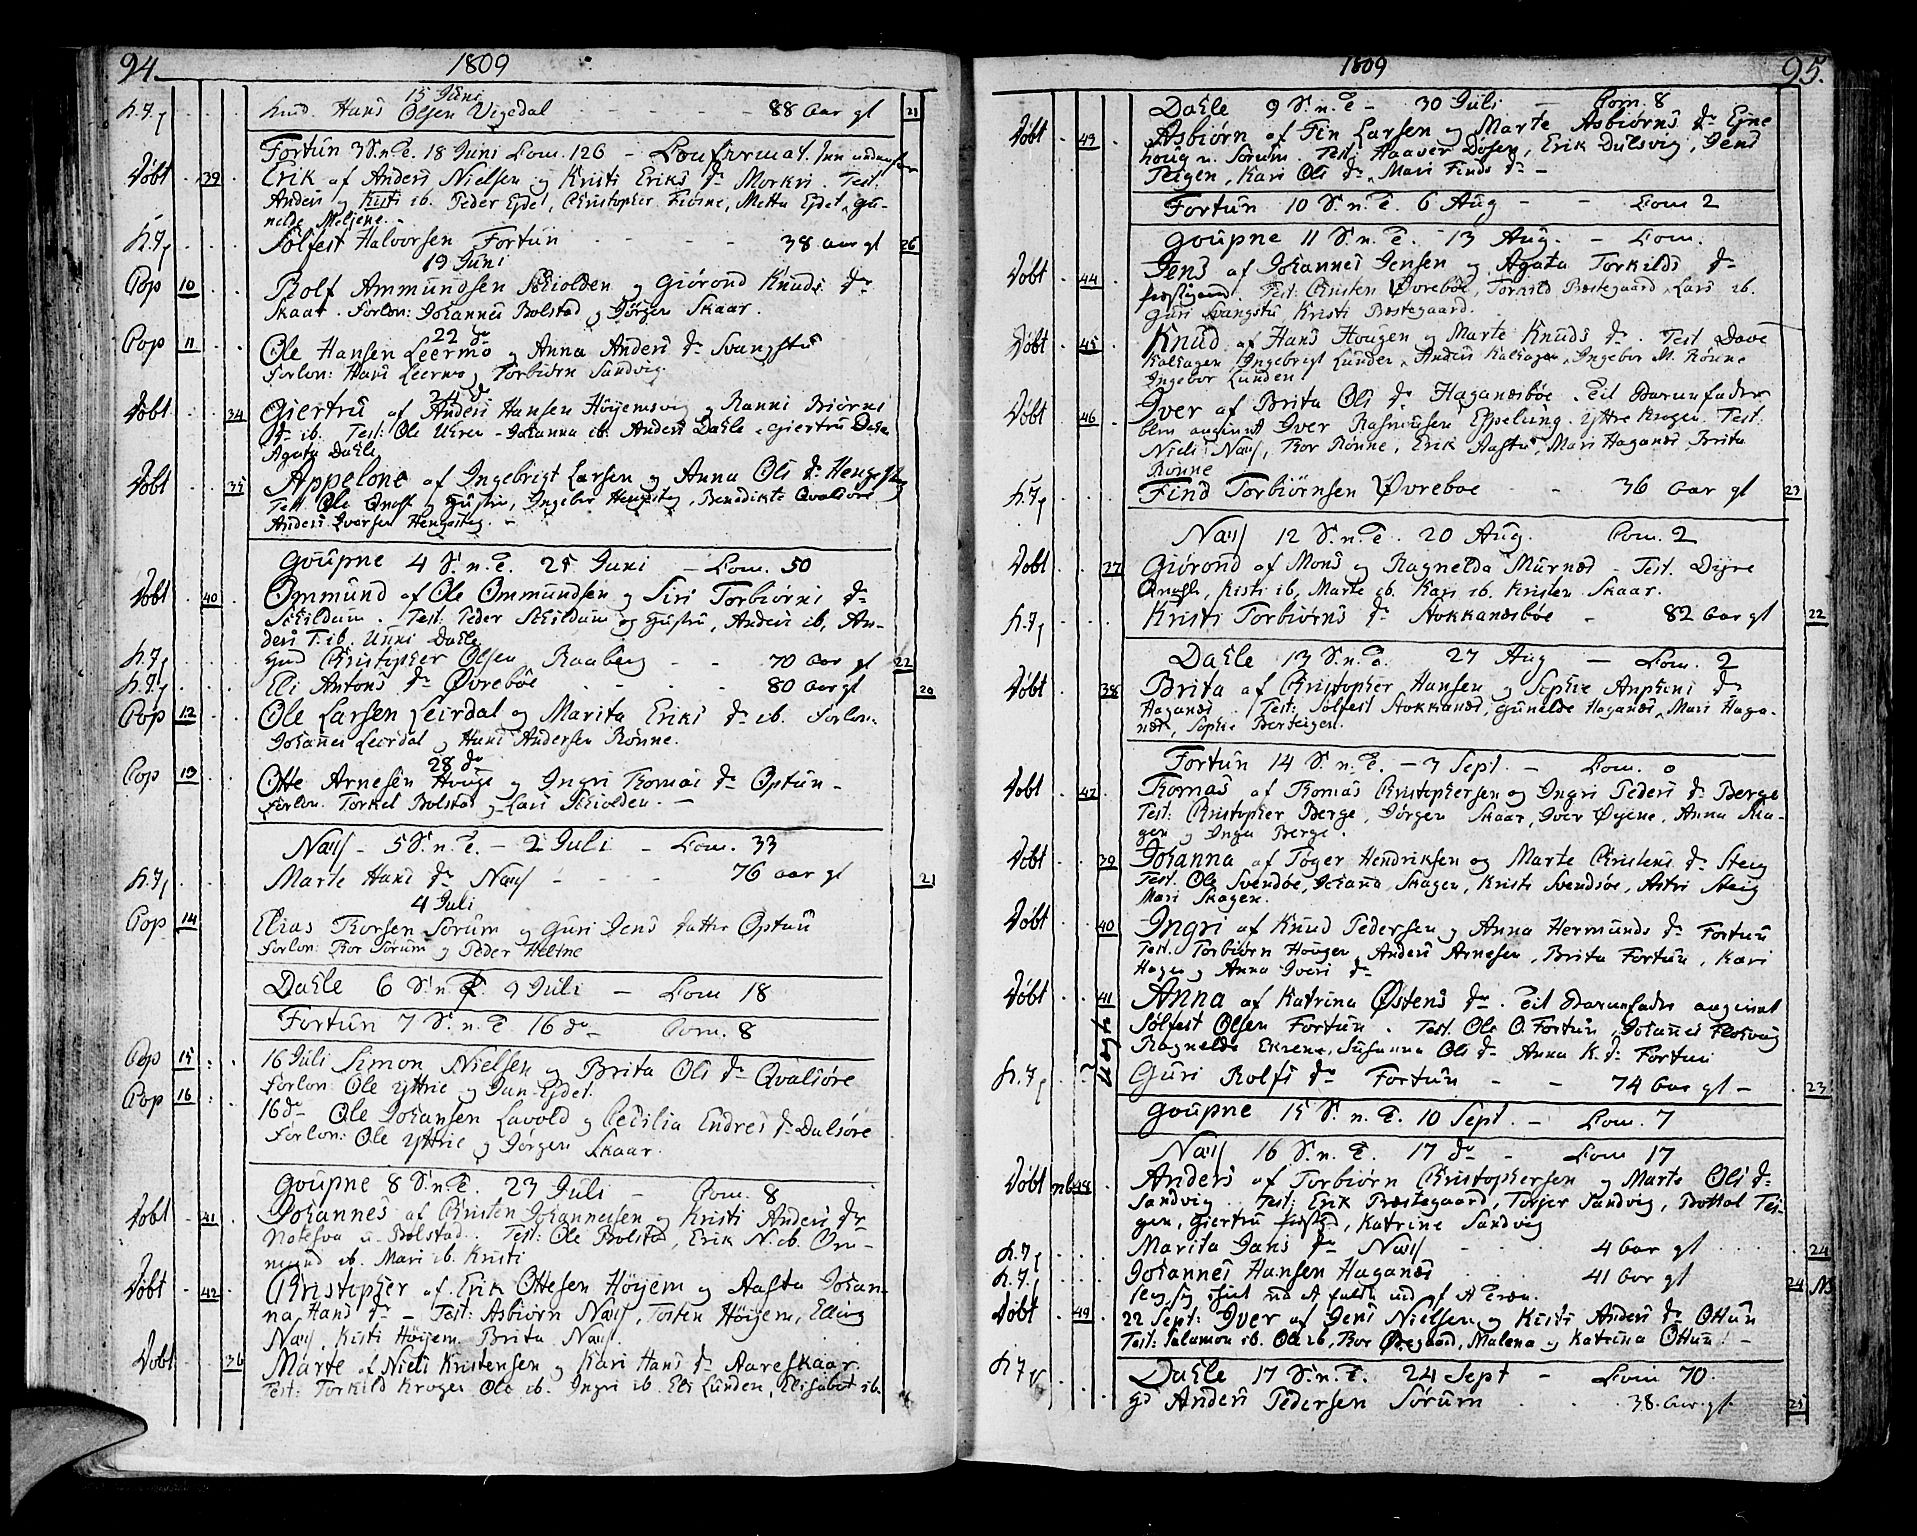 94. 1809
15 Juni
K. J. Hans Olsen Vigedal - - - 88 Aar gl 21
Fortun 3 S. n. T. 18 Juni Com. 126 - Confirmat.
Døbt 39 Erik af Anders Nielsen og Kristi Eriks Dr Morkri. Test.
Anders og Kisti ib. Peder Eydet, Christopher Fiøsne, Metta Eydet, Gu-
nelde Meljene. -
K. J. Sølfest Halvorsen Fortun - - - 38 Aar gl 26
19 Juni
Cop 10 Rolf Ammundsen Skiolden og Giørond Knuds Dr
Skaar. Forlov: Johannes Bolstad og Jørgen Skaar.
22 do
Cop 11 Ole Hansen Leermo og Anna Anders Dr Svangstu
Forlov: Hans Leermo og Torbiørn Sandvig.
24 do
Døbt 34 Giertru af Anders Hansen Høyemsvig og Ranni Biørns
Dr ib. Test: Ole Uhren - Johanna ib. Anders Dahle, Giertru Dahle
Agata Dahle
Døbt 35 Appelone af Ingebrigt Larsen og Anna Ols Dr Hengesteg
Test. Ole og Hustru, Ingebor Hengesteg, Benedikte Qvalsøre
Anders Iversen Hengesteg. -
Goupne 4 S. n. T. 25 Juni - Com. 50
Døbt 40 Ommund af Ole Ommundsen og Siri Torbiørns Dr
Schildum. Test: Peder Schildum og Hustru, Anders ib, An-
ders T. ib. Unni Dahle
K. J. Christopher Olsen Raaberg - - 70 Aar gl 22
K. J. Eli Antons Dr Øvrebøe - - 80 Aar gl 20
Cop 12 Ole Larsen Leirdal og Marita Eriks Dr ib. Forlov:
Johannes Leirdal og Hans Andersen Rønne.
28 do
Cop 13 Otte Arnesen Houge og Ingri Thomas Dr Optun -
Forlov: Torkel Bolstad og Lars Skiolden. -
Naes - 5 S. n. T. - 2 Juli - Com. 33
K. J. Marte Hans Dr Naes - - - 76 Aar gl 21
4 Juli
Cop 14 Elias Thorsen Sørum og Guri Jens Datter Optun
Forlov: Thor Sørum og Peder Heltne
Dahle 6 S. n. T. 9 Juli - Com 18
Fortun 7 S. n. T. 16 do - Com. 8
Cop 15 16 Juli Simon Nielsen og Brita Ols Dr Qvalsøre
Forlov: Ole Yttrie og Jan Eydet.
Cop 16 16 do Ole Johansen Lavold og Cecilia Endres Dr Dalsøre
Forlov: Ole Yttrie og Jørgen Skaar.
Goupne 8 S. n. T. 23 Juli - Com. 8
Døbt 41 Johannes af Christen Johannesen og Kristi Anders Dr
u. Bolstad. Test: Ole Bolstad, Erik N. ib. Om-
mund ib. Mari ib. Kristi
Døbt 42 Christopher af Erik Ottesen Høyem og Aasta Johan-
na Hans Dr - Test: Asbiørn Naes, Tosten Høyem, Elling
Naes. Kisti Høyem. Brita Naes.
Døbt 36 Marte af Niels Kristensen og Kari Hans Dr Aareskaar.
Test: Torkild Kroger Ole ib. Ingri ib. Eli Lunden, Elisabet ib.
1809 95.
Dahle 9 S. n. T - 30 Juli - Com. 8
Døbt 43 Asbiørn af Fin Larsen og Marte Asbiørns Dr Eyne
houg u. Sørum. Test: Haaver Døsen, Erik Dulsvig, Jens
Teigen, Kari Ols Dr, Mari Finds Dr -
Fortun 10 S. n. T. 6 Aug - - Com 2
Goupne 11 S. n. T. 13 Aug. - Com.
Døbt 44 Jens af Johannes Jensen og Agata Torkilds Dr
Test: Christen Øvrebøe, Torkild Præstegaard, Lars ib.
Guri Svangstu Kristi Præstegaard.
Døbt 45 Knud af Hans Hougen og Marte Knuds Dr. Test Dave
Kalhagen, Ingebrigt Lunden, Anders Kalhagen, Ingebor M. Rønne
Ingebor Lunden.
Døbt 46 Iver af Brita Ols Dr Haganæsbøe. Til Barnefader
blev angivet Iver Rasmusen Eppeland. Yttre Krogen Test:
Niels Naes, Thor Rønne, Erik Aastu, Mari Haganæs, Brita
Rønne
K. J. Find Torbiørnsen Øvreboe - 36 Aar gl 23
Naes 12 S. n. T. 20 Aug. Com. 2
Døbt 37 Giørond af Mons og Ragnelda Murnæs - Test. Dyre
Kisti ib, Marte ib. Kari ib. Kristen Skaar.
K. J. Kristi Torbiørns Dr Stokkanæsbøe - 82 Aar gl 22
Dahle 13 S. n. T. 27 Aug - Com. 2
Døbt 38 Brita af Christopher Hansen og Sophie Anphins Dr
Haganæs. Test: Sølfest Stokkanæs, Gunelde Haganæs, Mari Haga-
næs, Sophie Berteigen.
Fortun 14 S. n. T. - 3 Sept - Com. 0
Døbt 47 Thomas af Thomas Christophersen og Ingri Peders Dr Berge
Test: Christopher Berge, Jørgen Skaar, Iver Øyene, Anna Ska-
gen og Inga Berge.
Døbt 39 Johanna af Tøger Hendriksen og Marte Christens Dr Steig
Test. Ole Svendøe, Johana Skagen, Kristi Svendsøe, Astri Steig
Mari Skagen.
Døbt 40 Ingri af Knud Pedersen og Anna Hermunds Dr Fortun
Test. Torbiørn Hougen, Anders Arnesen, Brita Fortun, Kari
Hagen og Anna Ivers Dr
Døbt 41 Anna af Katrina Østens Dr. Til Barnefader angivet
Uægte
Sølfest Olsen Fortun. Test. Ole O. Fortun, Johannes
Ragnelde Ekrene, Susanna Ols Dr Anna K. Dr Fortun
K. J. Guri Rolfs Dr Fortun - - 74 Aar gl - 23
Goupne 15 S. n. T. 10 Sept. - Com. 7
Naes 16 S. n. T. 17 do - Com 17
Døbt nb 48 Anders af Torbiørn Christophersen og Marte Ols Dr
Sandvig. Test: Erik Præstegaard, Torjer Sandvig, Bottol Tei-
gen, Giertru, Katrine Sandvig
K. J. Marita Jans Dr Naes - - 4 Aar gl 24
K. J. Johannes Hansen Haganæs - 41 Aar gl 24 NB
slog sig ihiel ved at falde ned af et Træe.
Døbt 49 22 Sept: Iver af Jens Nielsen og Kisti Anders Dr Ottun
Test: Salamon ib. Ole ib, Thor Øvegaard, Malena og Katrina Ottun -
K. J. Dahle 17 S. n. T. 24 Sept - Com 70.
Anders Pedersen Sørum - - 38 Aar gl. 25